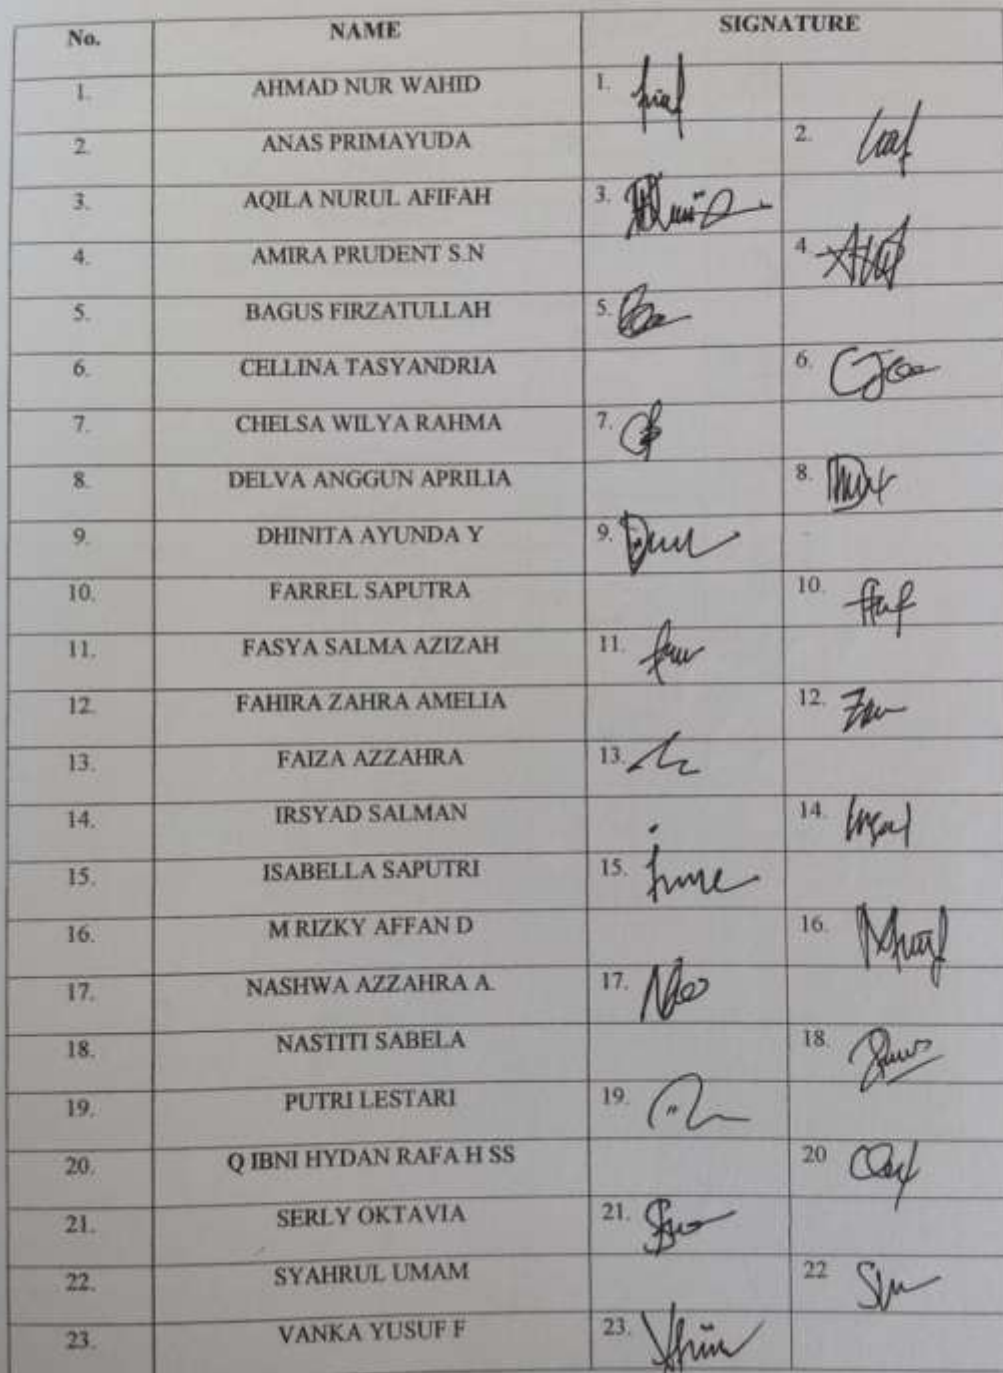 No. NAME SIGNATURE
1. AHMAD NUR WAHID 1.
2. ANAS PRIMAYUDA 2.
3. AQILA NURUL AFIFAH 3.
4. AMIRA PRUDENT S.N 4.
5. BAGUS FIRZATULLAH 5.
6. CELLINA TASYANDRIA 6.
7. CHELSA WILYA RAHMA 7.
8. DELVA ANGGUN APRILIA 8.
9. DHINITA AYUNDA Y 9.
10. FARREL SAPUTRA 10.
11. FASYA SALMA AZIZAH 11.
12. FAHIRA ZAHRA AMELIA 12.
13. FAIZA AZZAHRA 13.
14. IRSYAD SALMAN 14.
15. ISABELLA SAPUTRI 15.
16. M RIZKY AFFAN D 16.
17. NASHWA AZZAHRA A. 17.
18. NASTITI SABELA 18.
19. PUTRI LESTARI 19.
20. Q IBNI HYDAN RAFA H SS 20
21. SERLY OKTAVIA 21.
22. SYAHRUL UMAM 22
23. VANKA YUSUF F 23.